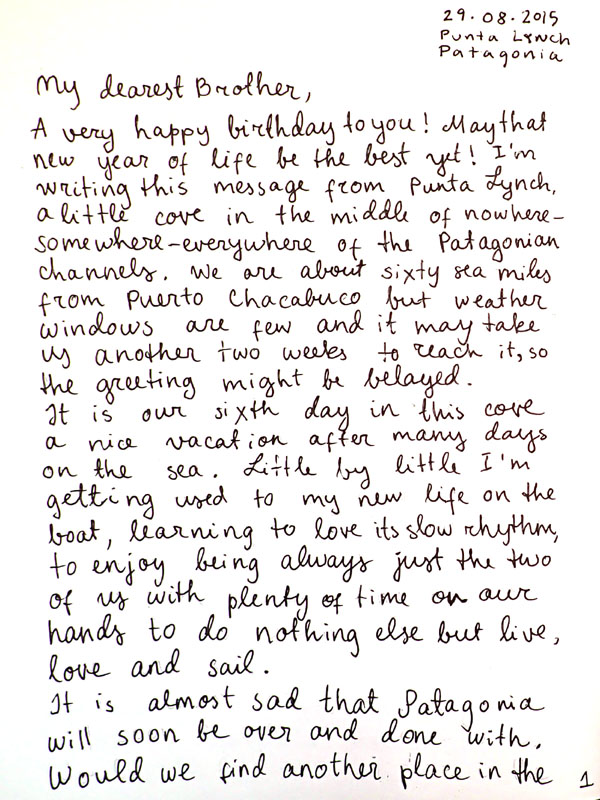 29.08.2015
Punta Lynch
Patagonia
My dearest Brother,
A very happy birthday to you! May that
new year of life be the best yet! I'm
writing this message from Punta Lynch,
a little cove in the middle of nowhere-
somewhere-everywhere of the Patagonian
channels. We are about sixty sea miles
from Puerto Chacabuco but weather
windows are few and it may take
us another two weeks to reach it, so
the greeting might be belayed.
It is our sixth day in this cove
a nice vacation after many days
on the sea. Little by little I'm
getting used to my new life on the
boat, learning to love its slow rhythm,
to enjoy being always just the two
of us with plenty of time on our
hands to do nothing else but live,
love and sail.
It is almost sad that Patagonia
will soon be over and done with.
Would we find another place in the
1